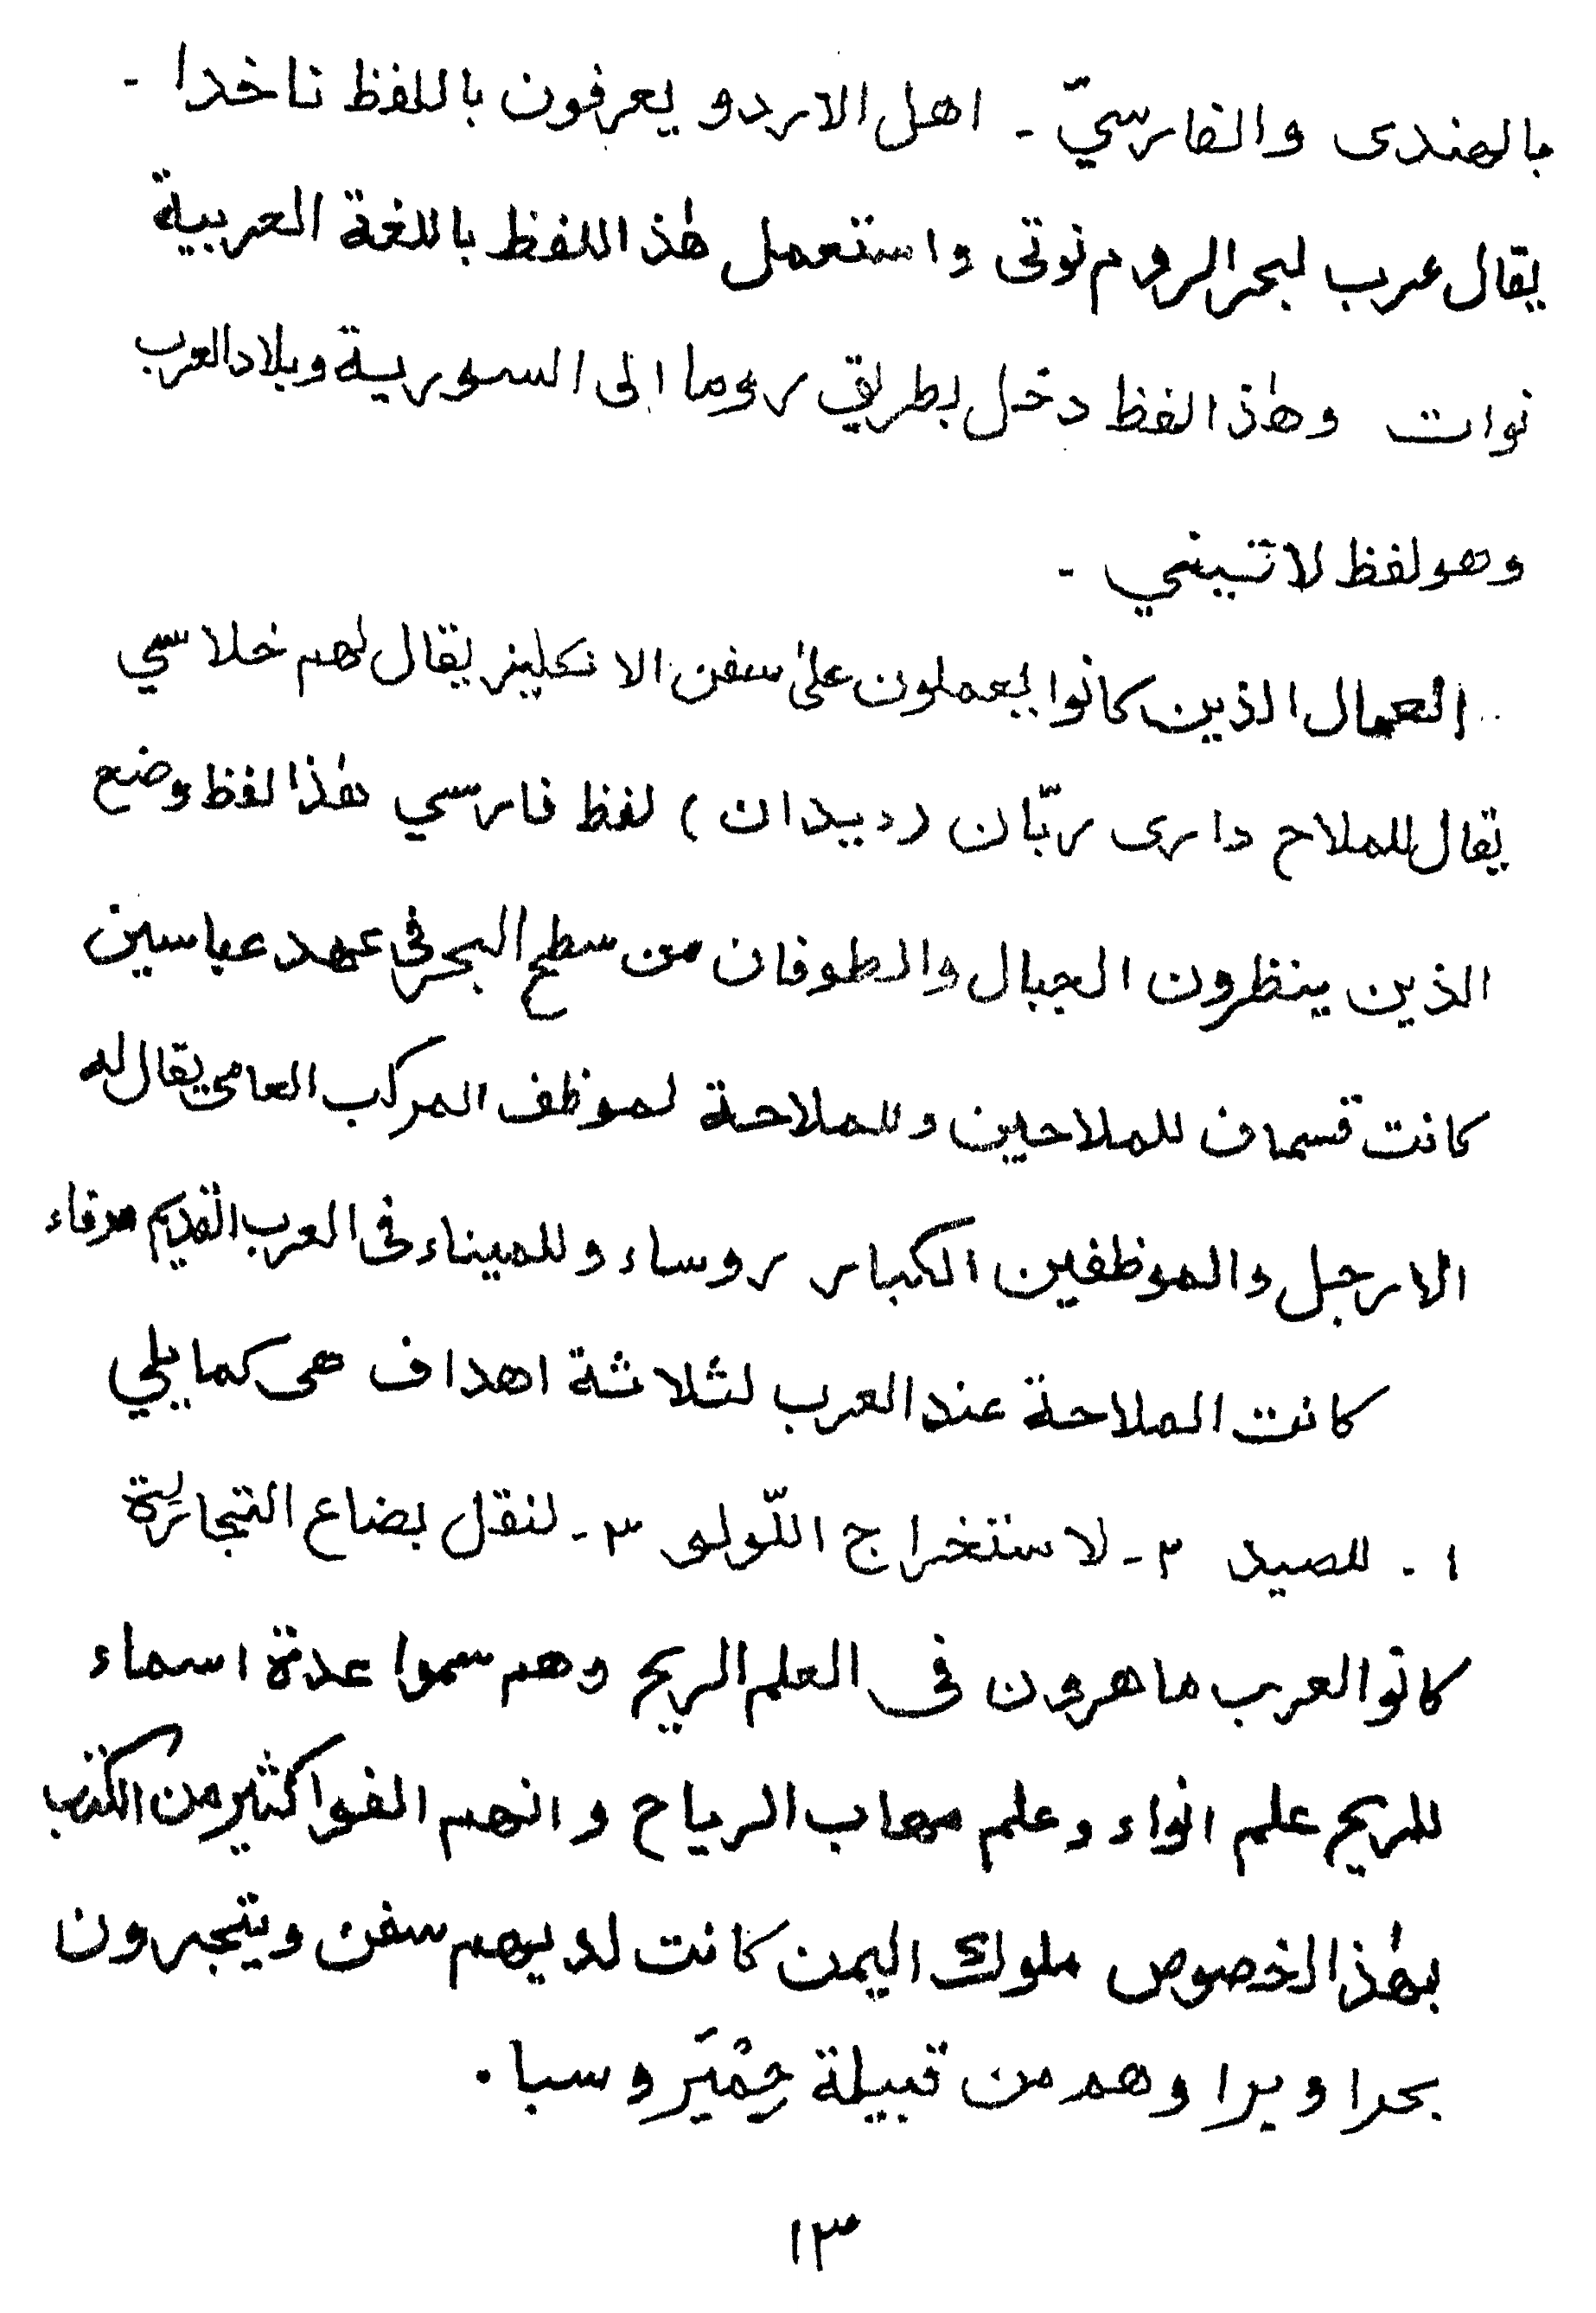 بالهندى والفارسيّ ـ اهل الاردو يعرفون باللفظ ناخدا ـ
يقال عرب لبحر الروم نوتى واستعمل هٰذ اللفظ باللغة العربية
نوات وهٰذ الفظ دخل بطريق روما الى السورية وبلاد العرب
وهو لفظ لاتيني ـ
العمال الذين كانوا يعملون علىٰ سفن الانكليز يقال لهم خلاسي
يقال للملاح دارى ربّان (ديدان) لفظ فارسي هٰذا لفظ وضع
الذين ينظرون الجبال والطوفان من سطح البحر فى عهد عباسين
كانت قسمان للملاحين وللملاحة لموظف المركب العامى يقال له
الارجل والموظفين الكبار روساء وللميناء فى العرب القديم مرفاء
كانت الملاحة عند العرب لثلاثة اهداف هى كما يلي
١ ـ للصيد ٢ ـ لاستخراج اللّولو ٣ ـ لنقل بضاع التجارية
كانو العرب ماهرون فى العلم الريح وهم سموا عدة اسماء
للريح علم انواء وعلم مهاب الرياح وانهم الفوا كثير من الكتب
بهٰذ الخصوص ملوك اليمن كانت لديهم سفن ويتجرون
بحرا وبرا وهم من قبيلة حِمْيَر وسبا .
١٣